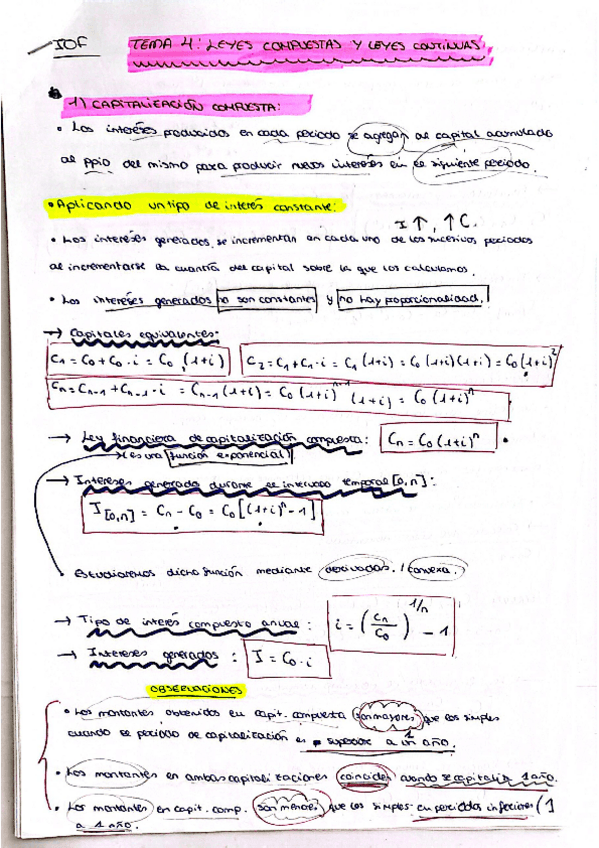 IOF
TEMA 4: LEYES COMPUESTAS Y LEYES CONTINUAS.
1) CAPITALIZACIÓN COMPUESTA:
• Los intereses producidos en cada periodo se agregan al capital acumulado
al ppio del mismo para producir nuevos intereses en el siguiente periodo.
• Aplicando un tipo de interés constante:
I↑, ↑C.
• Los intereses generados se incrementan en cada uno de los sucesivos periodos
al incrementarse la cuantía del capital sobre la que los calculamos.
• Los intereses generados no son constantes y no hay proporcionalidad.
→ Capitales equivalentes:
C1 = C0 + C0 · i = C0 (1+i) C2 = C1 + C1 · i = C1 (1+i) = C0 (1+i)(1+i) = C0 (1+i)²
Cn = Cn-1 + Cn-1 · i = Cn-1 (1+i) = C0 (1+i)ⁿ⁻¹ (1+i) = C0 (1+i)ⁿ
→ Ley financiera de capitalización compuesta: Cn = C0 (1+i)ⁿ
↳ es una función exponencial
→ Intereses generados durante el intervalo temporal [0,n]:
I[0,n] = Cn - C0 = C0 [(1+i)ⁿ - 1]
• Estudiaremos dicha función mediante derivadas. / convexa.
→ Tipo de interés compuesto anual: i = (Cn/C0)^1/n - 1
→ Intereses generados: I = C0 · i
OBSERVACIONES
• Los montantes obtenidos en capit. compuesta son mayores que los simples
cuando el periodo de capitalización es superior a un año.
• Los montantes en ambas capitalizaciones coinciden cuando se capitaliza 1 año.
• Los montantes en capit. comp. son menores que los simples en periodos inferiores
a 1 año.